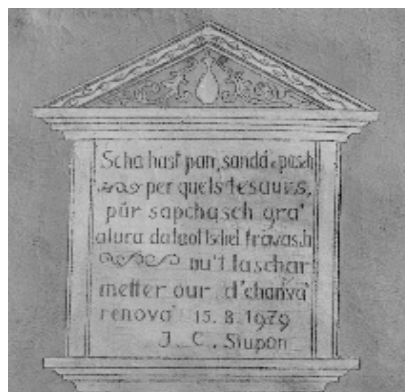 Scha hast pan, sandà e pasch
per quels tesaurs,
pür sapchasch gra'
alura da tool tschel travasch
nu't laschar
metter our d'chanva'
renovà 15. 8. 1979
J. C. Stupon